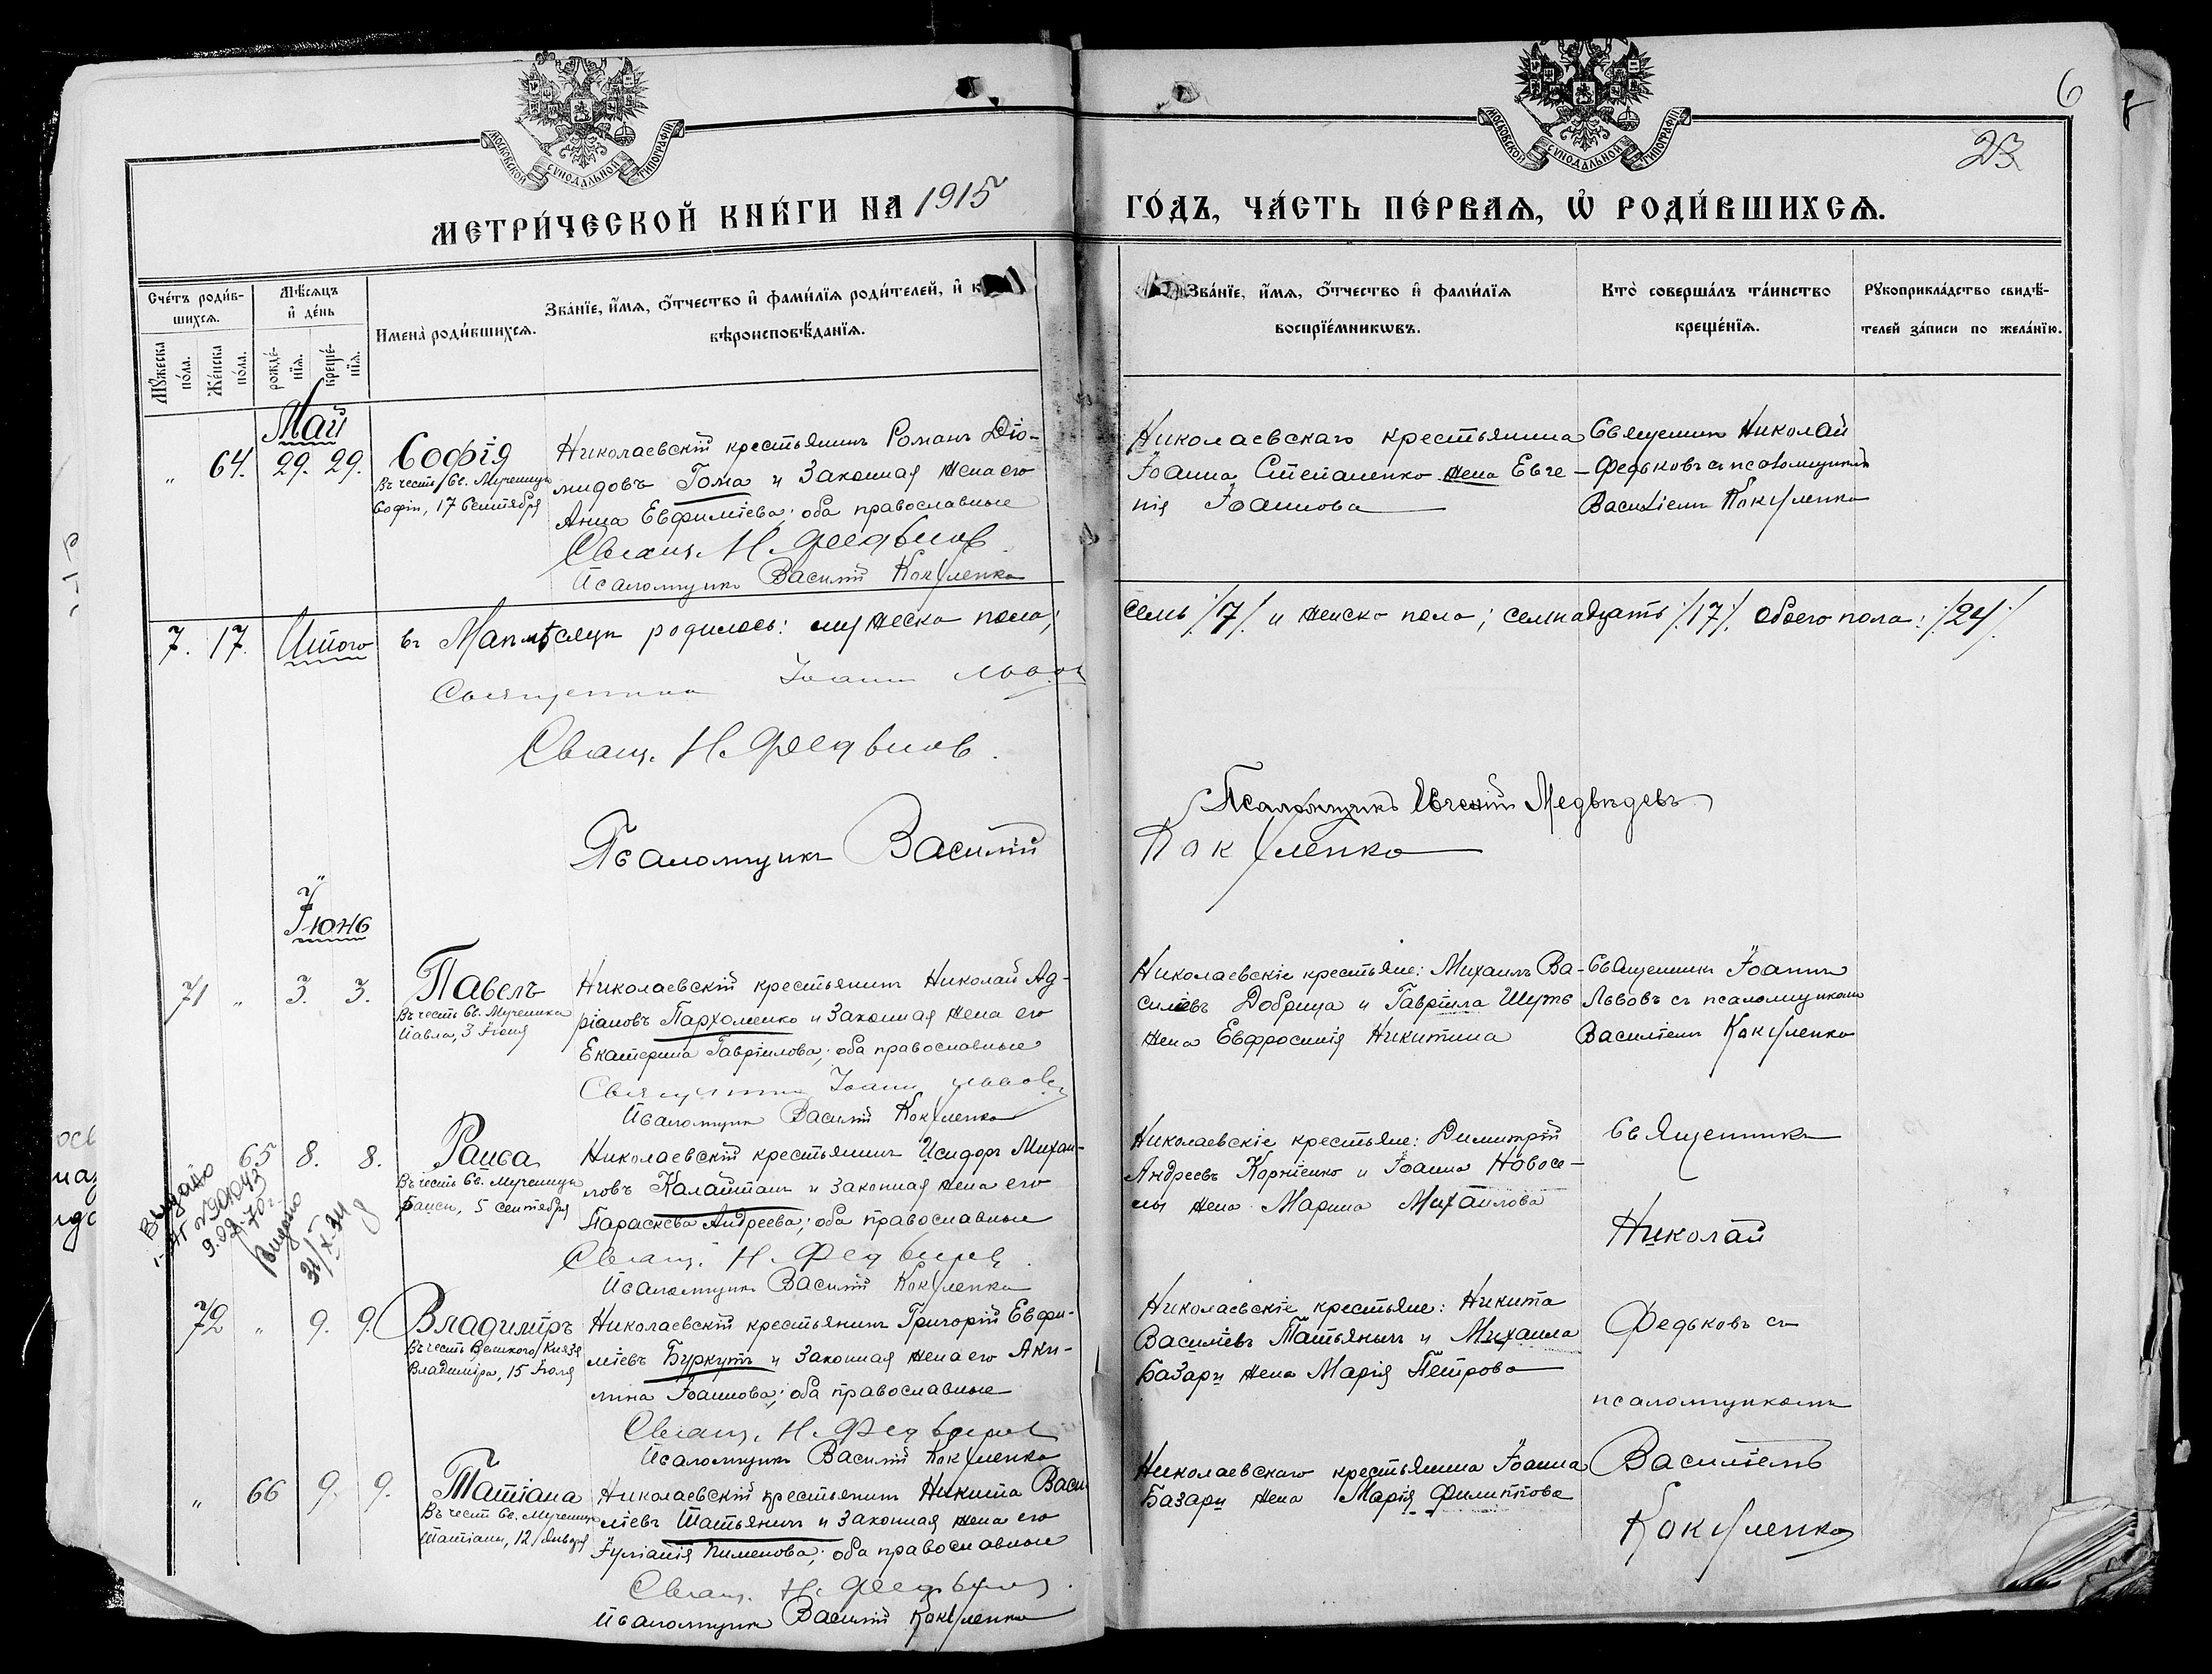 6
23
МОСКОВСКОЙ СѴНОДАЛЬНОЙ ТИПОГРАФІИ
МОСКОВСКОЙ СѴНОДАЛЬНОЙ ТИПОГРАФІИ
МЕТРИ́ЧЕСКОЙ КНИ́ГИ НА 1915
ГО́ДЪ, ЧА́СТЬ ПЕ́РВАѦ, Ѡ҆ РОДИ́ВШИХСѦ.
Сче́тъ роди́в-
шихсѧ.
Мꙋ́жеска по́ла.
Же́нска по́ла.
Мѣ́сѧцъ
и҆ де́нь
рожде́-
нїѧ.
креще́-
нїѧ.
И҆мена̀ роди́вшихсѧ.
Зва́нїе, и҆́мѧ, ѻ҆́тчество и҆ фами́лїѧ роди́телей, и҆ к
вѣроисповѣ́данїѧ.
Зва́нїе, и҆́мѧ, ѻ҆́тчество и҆ фами́лїѧ
воспрїе́мникѡвъ.
Кто̀ соверша́лъ та́инство
креще́нїѧ.
Рꙋкоприкла́дство свидѣ́-
телей за́писи по жела́нїю.
Май
" 64. 29. 29. Софія
Въ честь Св. Мученицы
Софіи, 17 Сентября
Николаевскій крестьянинъ Романъ Діо-
мидовъ Гома и Законная жена его
Анна Евфиміева; оба православные
Свящ. Н. Федьковъ
Псаломщикъ Василій Кокуленко
Николаевскаго крестьянина
Іоанна Степаненко жена Евге-
нія Іоаннова
Священникъ Николай
Федьковъ съ псаломщикомъ
Василіемъ Кокуленко
7. 17. Итого въ Маѣ мѣсяцѣ родилось: мужеска пола;
семь /7/ и женско пола; семнадцать /17/. Обоего пола: /24/.
Священникъ Іоаннъ Львовъ
Свящ. Н. Федьковъ.
Псаломщикъ Евгеній Медвѣдевъ
Псаломщикъ Василій
Кокуленко
Іюнь
71 " 3. 3. Павелъ
Въ честь Св. Мученика
Павла, 3 Іюня
Николаевскій крестьянинъ Николай Ад-
ріановъ Пархоменко и Законная жена его
Екатерина Гавріилова; оба православные
Священникъ Іоаннъ Львовъ
Псаломщикъ Василій Кокуленко
Николаевскіе крестьяне: Михаилъ Ва-
силіевъ Добрица и Гавріила Шуть
жена Евфросинія Никитина
Священникъ Іоаннъ
Львовъ съ псаломщикомъ
Василіемъ Кокуленко
65 8. 8. Раиса
Въ честь Св. Мученицы
Раисы, 5 сентября
Николаевскій крестьянинъ Исидоръ Михаи-
ловъ Калайтанъ и законная жена его
Параскева Андреева; оба православные
Свящ. Н. Федьковъ.
Псаломщикъ Василій Кокуленко
Николаевскіе крестьяне: Димитрій
Андреевъ Корніенко и Іоанна Новосе-
лы жена Марина Михаилова
Священникъ
Николай
Выдано
Выдано
31/X-34
72 " 9. 9. Владиміръ
Въ честь Великого Князя
Владиміра, 15 Іюля
Николаевскій крестьянинъ Григорій Евфи-
міевъ Буркутъ и Законная жена его Аки-
лина Іоаннова; оба православные
Свящ. Н. Федьковъ
Псаломщикъ Василій Кокуленко
Николаевскіе крестьяне: Никита
Василіевъ Татьянинъ и Михаила
Базары жена Марія Петрова
Федьковъ съ
псаломщикомъ
" 66 9. 9. Татіана
Въ честь Св. Мученицы
Татіаны, 12 Января
Николаевскій крестьянинъ Никита Васи-
ліевъ Татьянинъ и Законная жена его
Іуліанія Пименова; оба православные
Свящ. Н. Федьковъ.
Псаломщикъ Василій Кокуленко
Николаевскаго крестьянина Іоанна
Базары жена Марія Филиппова
Василіемъ
Кокуленко